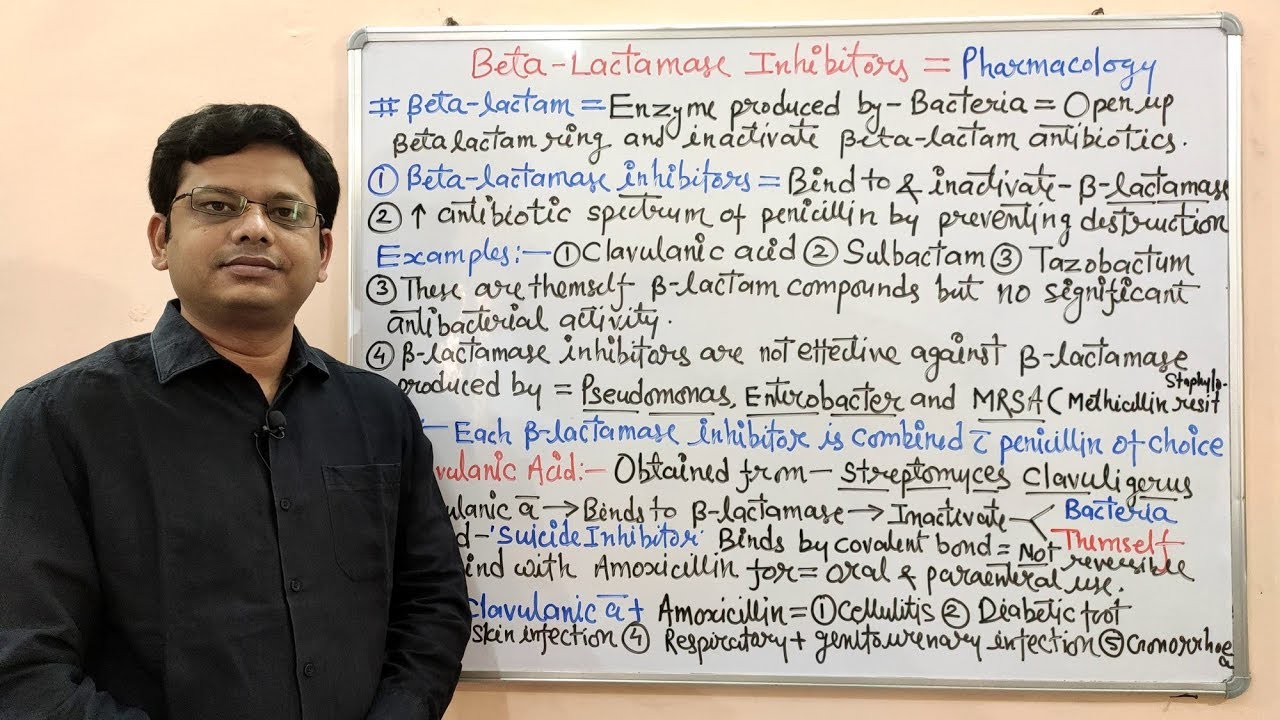 Beta-Lactamase Inhibitors = Pharmacology
# Beta-lactam = Enzyme produced by - Bacteria = Open up
Beta lactam ring and inactivate Beta-lactam antibiotics.
① Beta-lactamase inhibitors = Bind to & inactivate - β-lactamase
② ↑ antibiotic spectrum of penicillin by preventing destruction
Examples:- ① Clavulanic acid ② Sulbactam ③ Tazobactum
③ These are themself β-lactam compounds but no significant
antibacterial activity.
④ β-lactamase inhibitors are not effective against β-lactamase
produced by = Pseudomonas, Enterobacter and MRSA (Methicillin resit Staphylo-
Each β-lactamase inhibitor is combined c̄ penicillin of choice
vulanic Acid:- Obtained from - Streptomyces Clavuligerus
ulanic a → Binds to β-lactamase → Inactivate Bacteria
d - 'Suicide Inhibitor' Binds by covalent bond = Not reversible Themself
ind with Amoxicillin for = oral & paraenteral use.
Clavulanic a + Amoxicillin = ① Cellulitis ② Diabetic foot
skin infection ④ Respiratary + genitourenary infection ⑤ Gonorrhoea